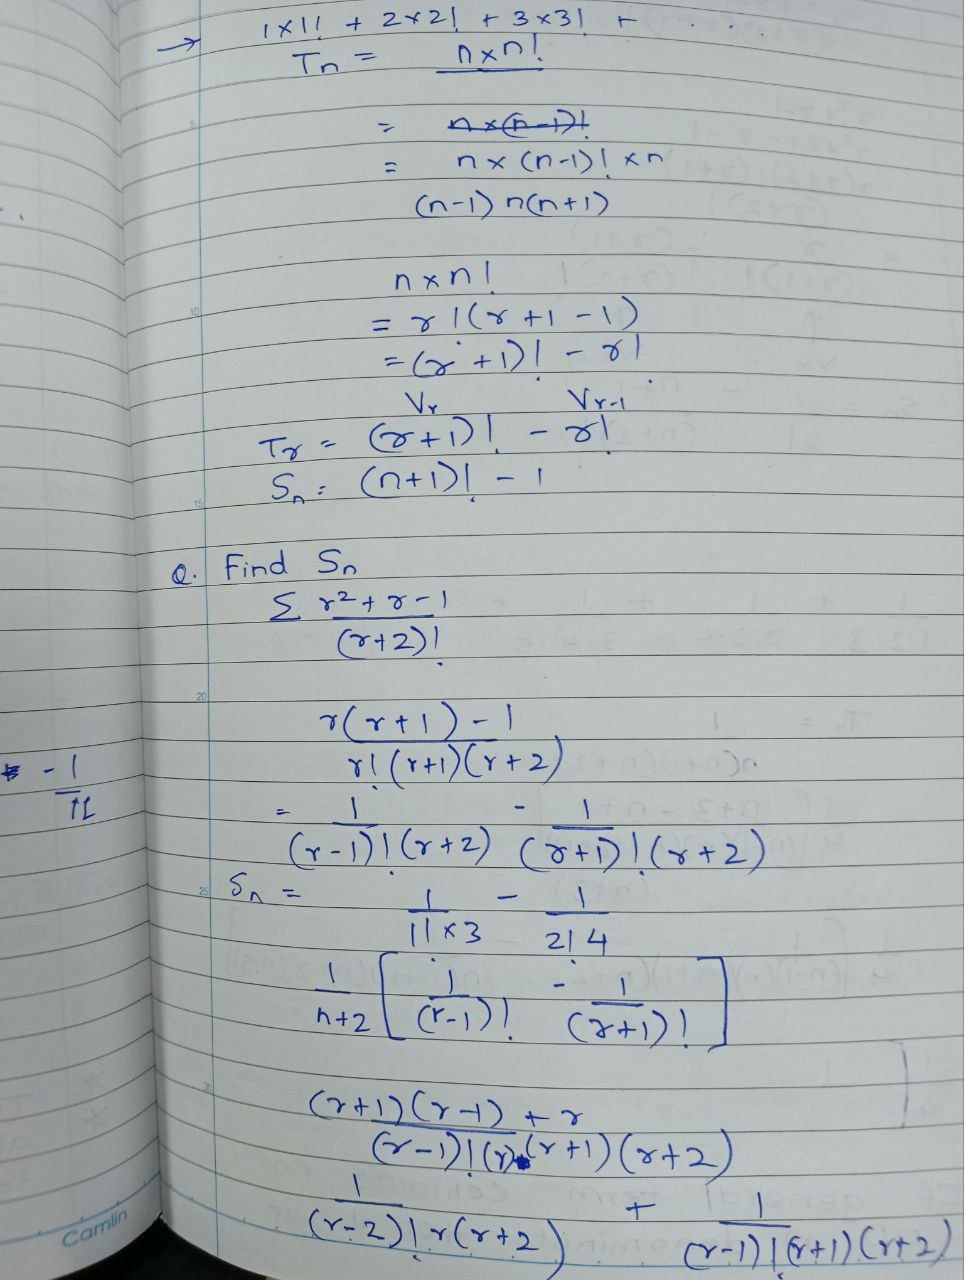 → 1×1! + 2×2! + 3×3! + . . .
Tn = n×n!
= n×(n-1)!
= n×(n-1)! ×n
(n-1) n(n+1)
n×n!
= r!(r+1-1)
= (r+1)! - r!
Vr Vr-1
Tr = (r+1)! - r!
Sn = (n+1)! - 1
Q. Find Sn
Σ r²+r-1
(r+2)!
r(r+1)-1
r!(r+1)(r+2)
= 1 - 1
(r-1)!(r+2) (r+1)!(r+2)
Sn = 1 - 1
1!×3 2!4
1 [ 1 - 1 ]
n+2 (r-1)! (r+1)!
(r+1)(r-1)+r
(r-1)!(r)(r+1)(r+2)
1 + 1
(r-2)!r(r+2) (r-1)!(r+1)(r+2)
- 1
Camlin